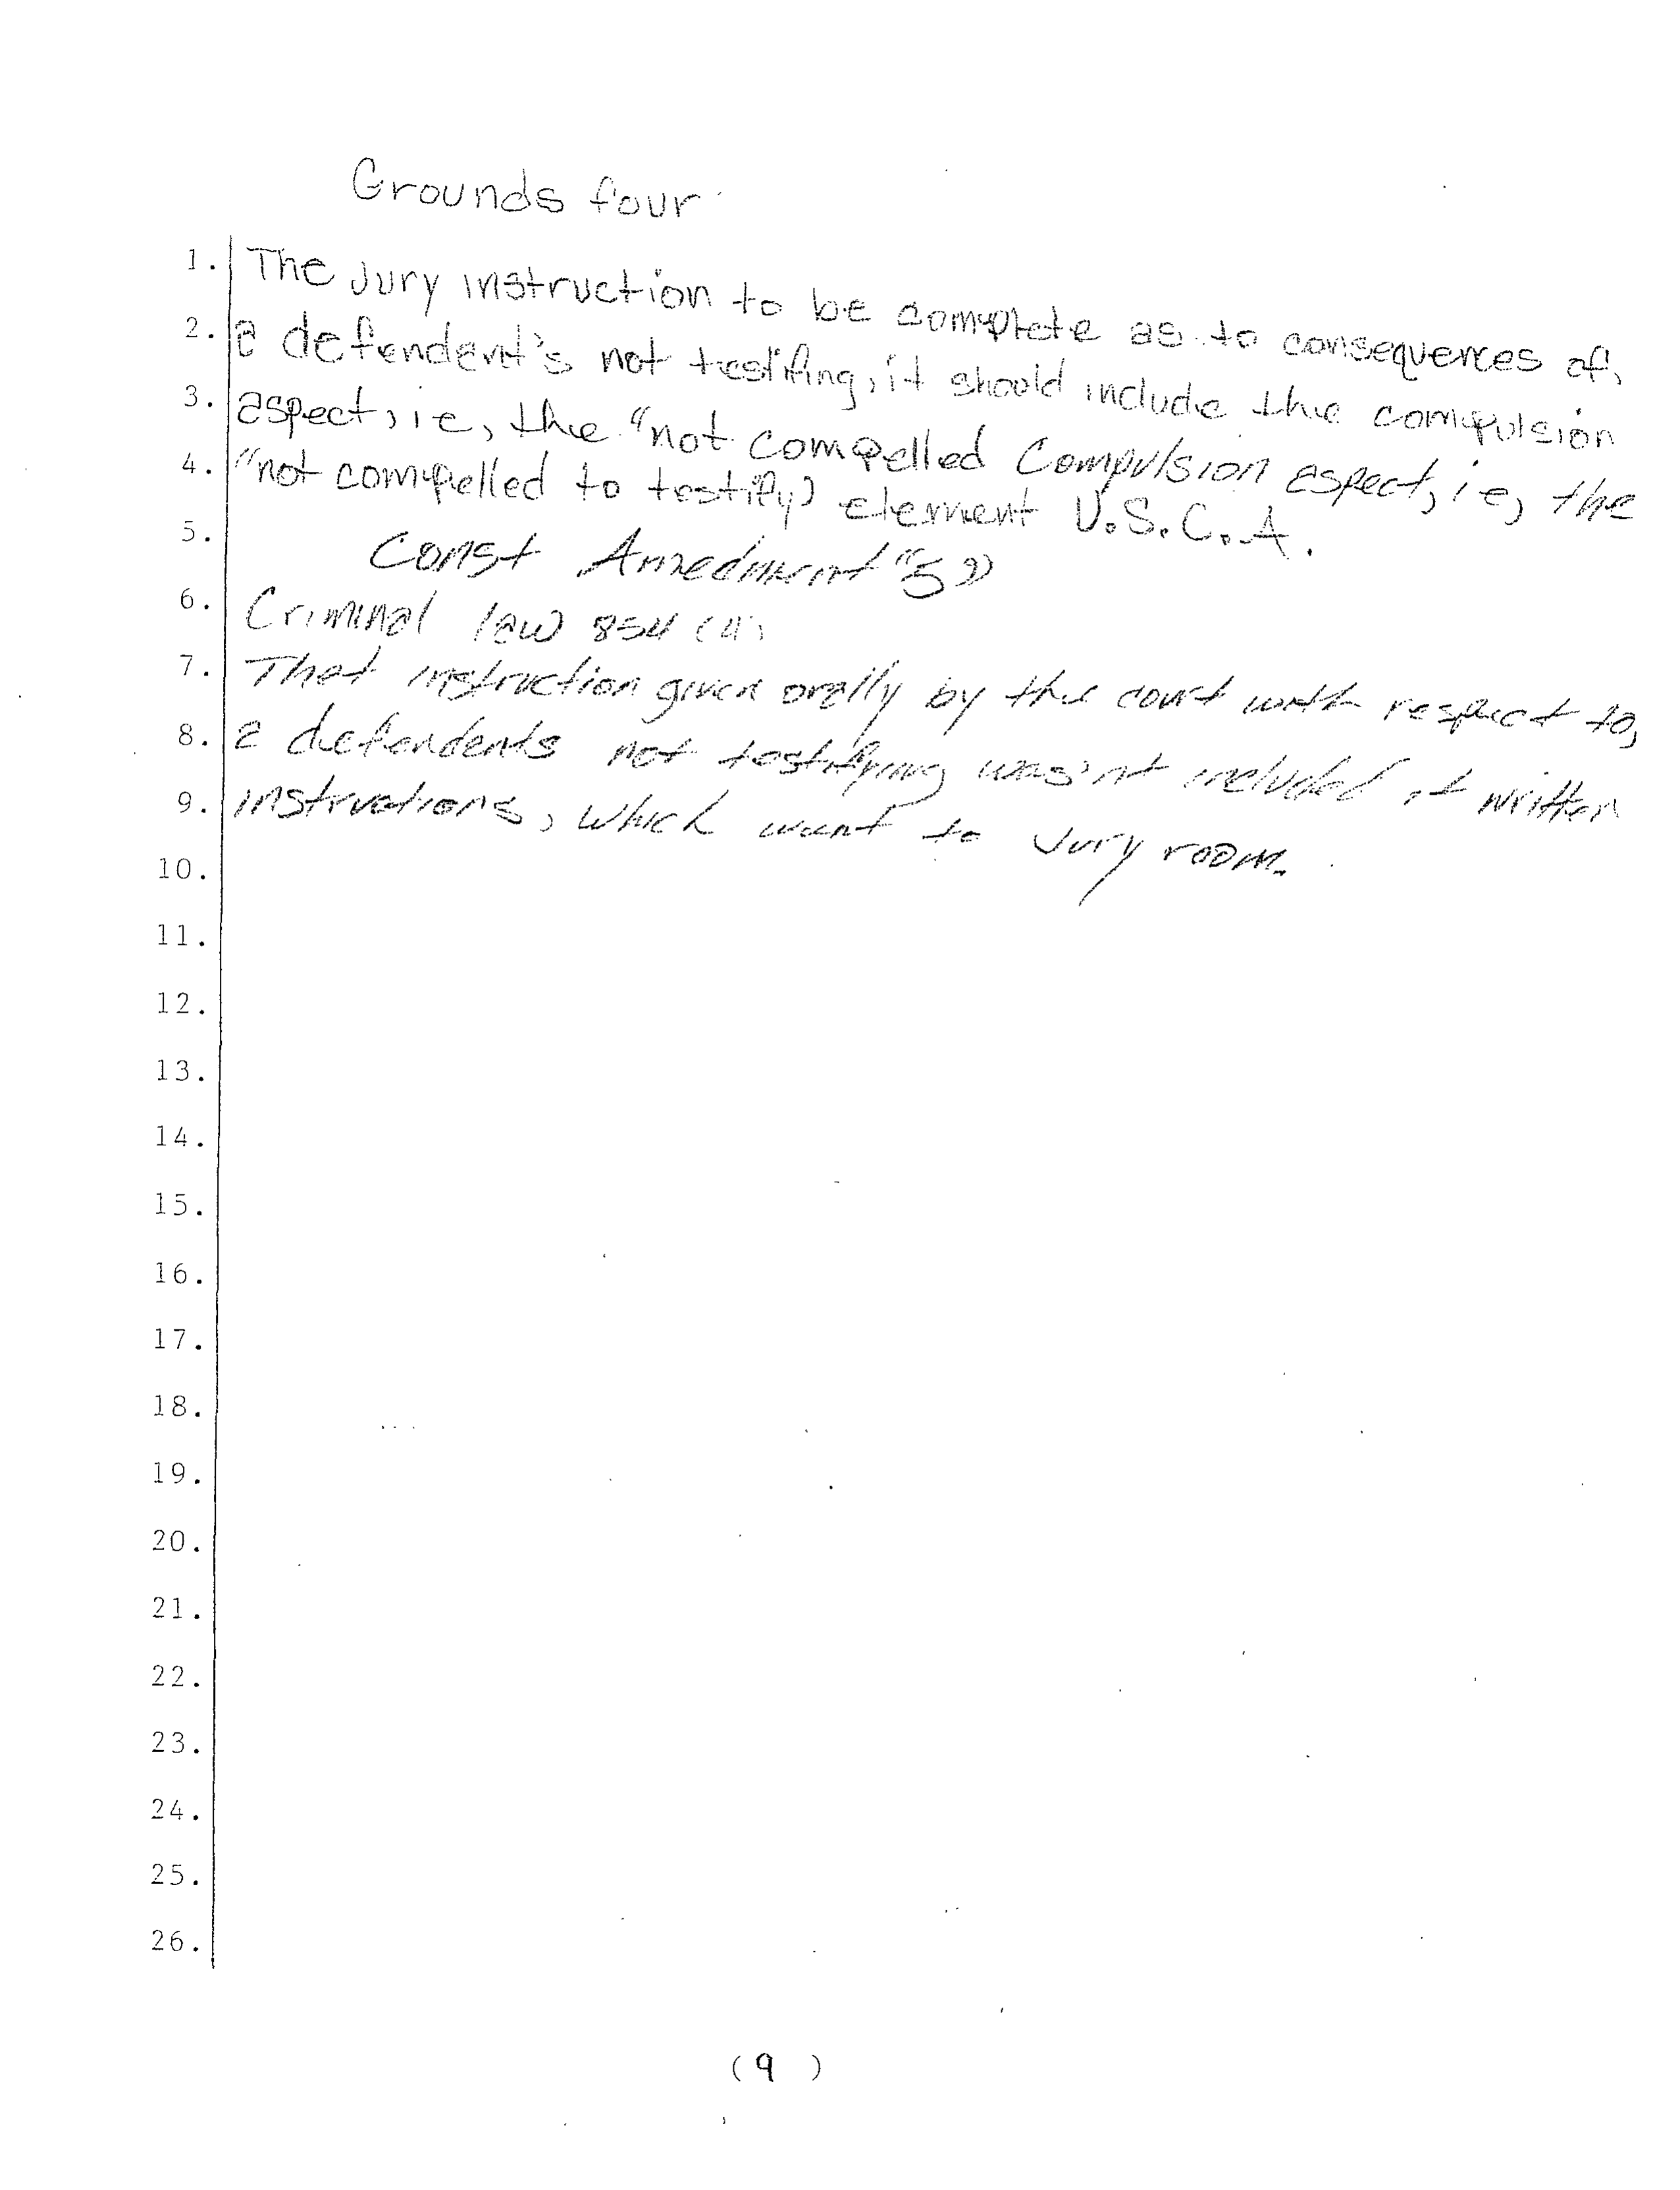 Grounds four
1. The Jury instruction to be complete as to consequences of,
2. a defendent's not testifing, it should include the compulsion
3. aspect, ie, the "not compelled Compulsion aspect, ie, the
4. "not compelled to testify) element U.S.C.A.
5. Const Amedment "5"
6. Criminal law 854 (4)
7. That instruction given orally by the court with respect to,
8. a defendents not testifying was'nt included it written
9. instructions, which want to Jury room.
10.
11.
12.
13.
14.
15.
16.
17.
18.
19.
20.
21.
22.
23.
24.
25.
26.
( 9 )